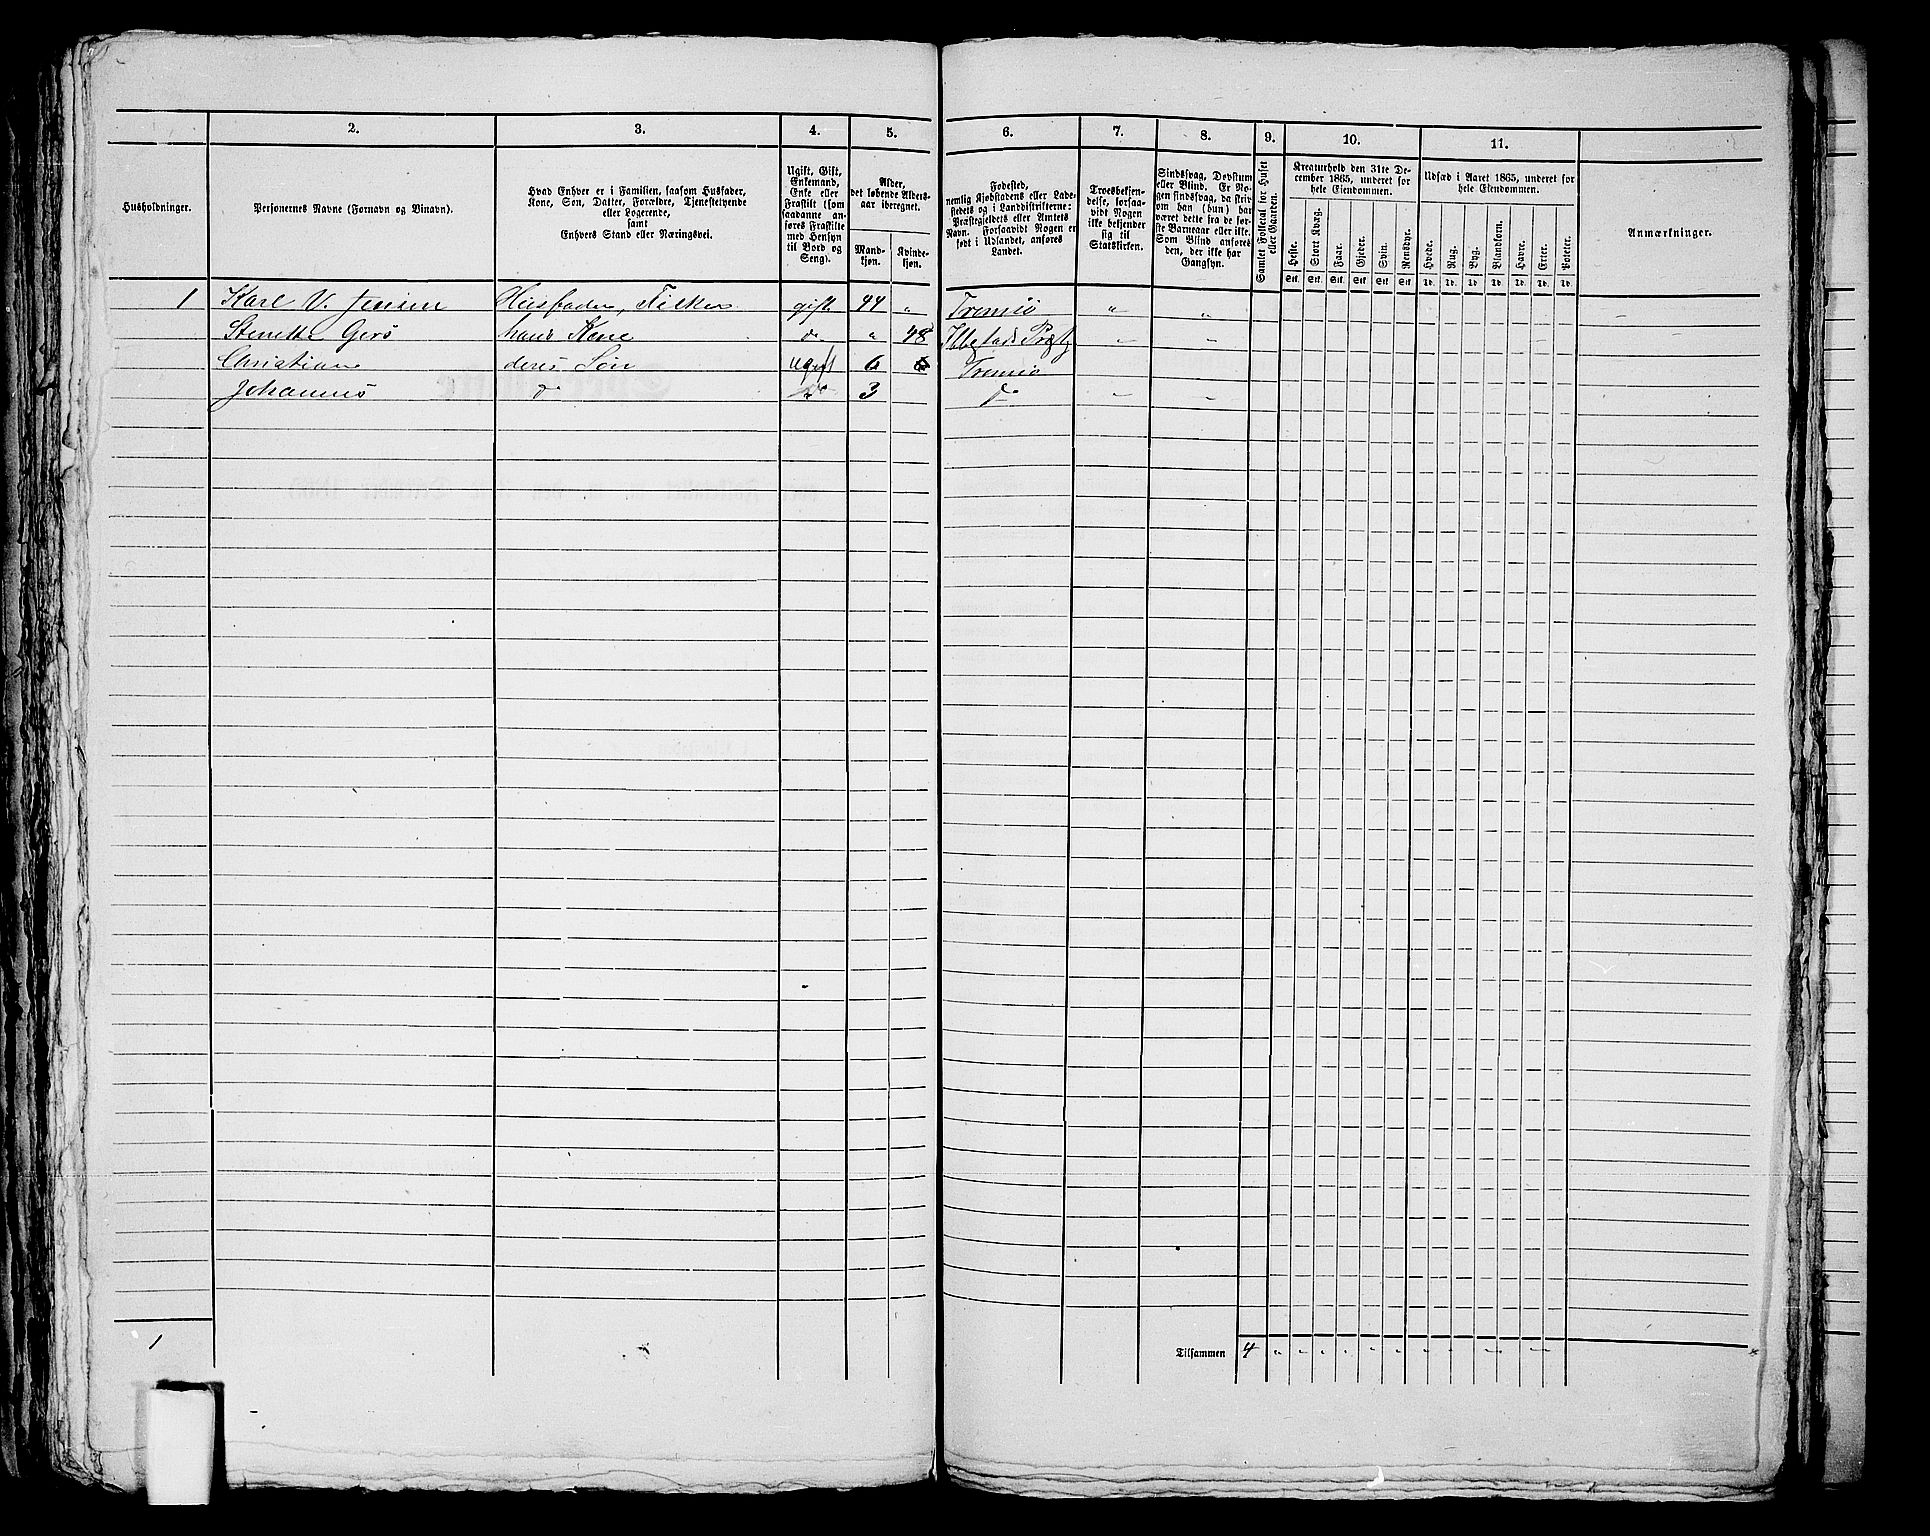 2. 3. 4. 5. 6. 7. 8. 9. 10. 11.
Husholdninger.
Personernes Navne (Fornavn og Vinavn).
Hvad Enhver er i Familien, saasom Husfader,
Kone, Søn, Datter, Forældre, Tjenestetyende
eller Logerende,
samt
Enhvers Stand eller Næringsvei.
Ugift, Gift,
Enkemand,
Enke eller
Fraskilt (som
saadanne an-
føres Fraskilte
med Hensyn
til Bord og
Seng).
Alder,
det løbende Alders-
aar iberegnet.
Mand-
kjøn.
Kvinde-
kjøn.
Fødested,
nemlig Kjøbstadens eller Lade-
stedets og i Landdistrikterne:
Præstegjeldets eller Amtets
Navn. Forsaavidt Nogen er
født i Udlandet, anføres
Landet.
Troesbekjen-
delse, forsaa-
vidt Nogen
ikke bekjender
sig til
Statskirken.
Sindssvag, Døvstum
eller Blind. Er No-
gen sindssvag, da skriv
om han (hun) har
været dette fra de før-
ste Barneaar eller ikke.
Som Blind anføres
den, der ikke har
Gangsyn.
Samlet Folketal for Huset
eller Gaarden.
Kreaturhold den 31te De-
cember 1865, underet for
hele Eiendommen.
Heste. Stort Kvæg. Faar. Gjeder. Svin. Rensdyr.
Stk. Stk. Stk. Stk. Stk. Stk.
Udsæd i Aaret 1865, underet for
hele Eiendommen.
Hvede. Rug. Byg. Blandkorn. Havre. Erter. Poteter.
Td. Td. Td. Td. Td. Td. Td.
Anmærkninger.
1 Karl V. Jensen Husfader, gift 44 " Tromsö " "
Stenette Gers hans Kone do " 48 Ibbestads " "
Christian deres Søn ugift 6 Tromsö
Johannes do do 3 do " "
1
Tilsammen 4 " " " " " " " " " "